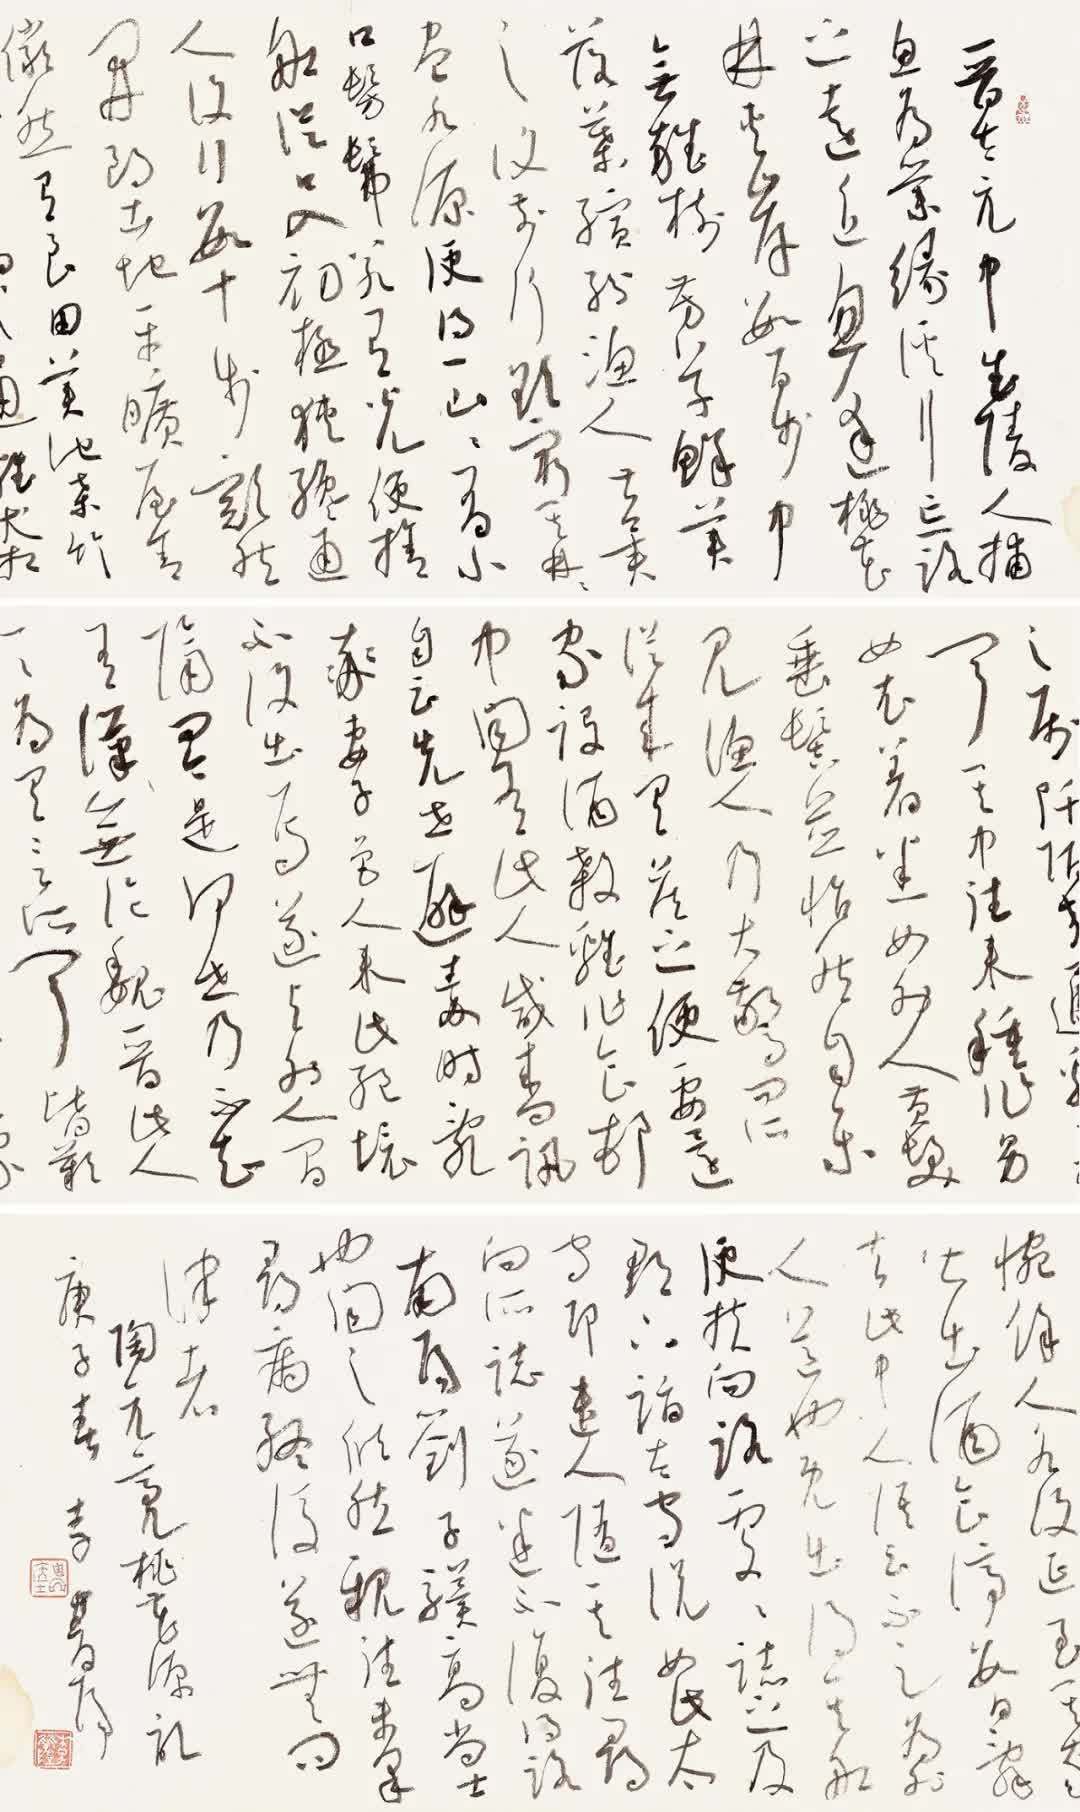 晉太元中武陵人捕
魚為業緣溪行忘路
之遠近忽逢桃花
林夾岸數百步中
無雜樹芳草鮮美
落英繽紛漁人甚異
之復前行欲窮其林〻
盡水源便得一山〻有小
口髣髴若有光便捨
船從口入初極狹纔通
人復行數十步豁然
開朗土地平曠屋舍
儼然有良田美池桑竹
通雞犬相
之屬阡陌交通雞
聞其中往來種作男
女衣着悉如外人黃髮
垂髫並怡然自樂
見漁人乃大驚問所
從來具答之便要還
家設酒殺雞作食村
中聞有此人咸來問訊
自云先世避秦時亂
率妻子邑人來此絕境
不復出焉遂與外人間
隔問今是何世乃不知
有漢無論魏晉此人
一〻為具言所聞皆歎
惋餘人各復延至其家
皆出酒食停數日辭
去此中人語云不足為外
人道也既出得其船
便扶向路處〻誌之及
郡下詣太守說如此太
守即遣人隨其往尋
向所誌遂迷不復得路
南陽劉子驥高尚士
也聞之欣然規往未果
尋病終後遂無問
津者
陶元亮桃花源記
庚子春 李